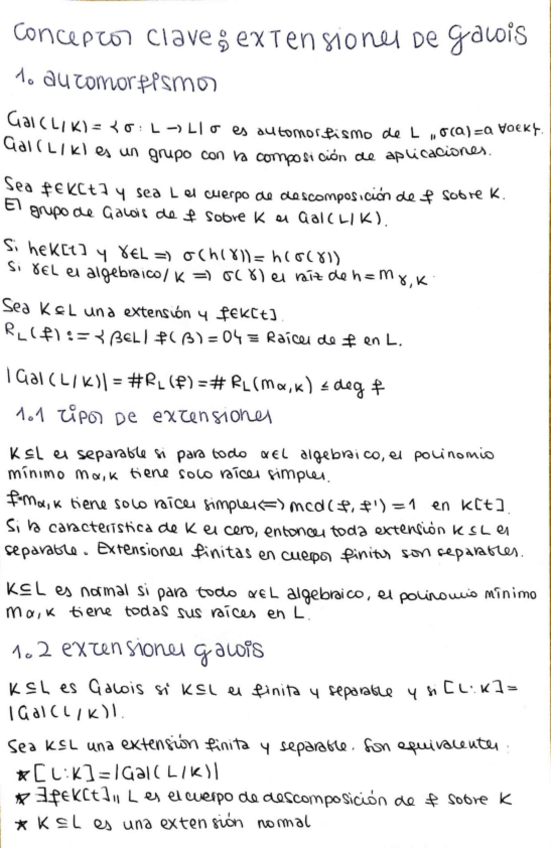 Conceptos clave: extensiones de Galois
1. automorfismos
Gal(L/K) = {σ: L → L | σ es automorfismo de L ,, σ(a)=a ∀a∈K}.
Gal(L/K) es un grupo con la composición de aplicaciones.
Sea f∈K[t] y sea L el cuerpo de descomposición de f sobre K.
El grupo de Galois de f sobre K es Gal(L/K).
Si h∈K[t] y γ∈L => σ(h(γ)) = h(σ(γ))
Si γ∈L es algebraico/K => σ(γ) es raíz de h = m γ,K
Sea K⊆L una extensión y f∈K[t]
R_L(f) := {β∈L | f(β)=0} ≡ Raíces de f en L.
|Gal(L/K)| = #R_L(f) = #R_L(mα,K) ≤ deg f
1.1 tipos de extensiones
K⊆L es separable si para todo α∈L algebraico, el polinomio
mínimo mα,K tiene solo raíces simples.
f=mα,K tiene solo raíces simples <=> mcd(f,f')=1 en K[t]
Si la característica de K es cero, entonces toda extensión K⊆L es
separable. Extensiones finitas en cuerpos finitos son separables.
K⊆L es normal si para todo α∈L algebraico, el polinomio mínimo
mα,K tiene todas sus raíces en L.
1.2 extensiones galois
K⊆L es Galois si K⊆L es finita y separable y si [L:K]=
|Gal(L/K)|.
Sea K⊆L una extensión finita y separable. Son equivalentes:
* [L:K]=|Gal(L/K)|
* ∃f∈K[t],, L es el cuerpo de descomposición de f sobre K
* K⊆L es una extensión normal